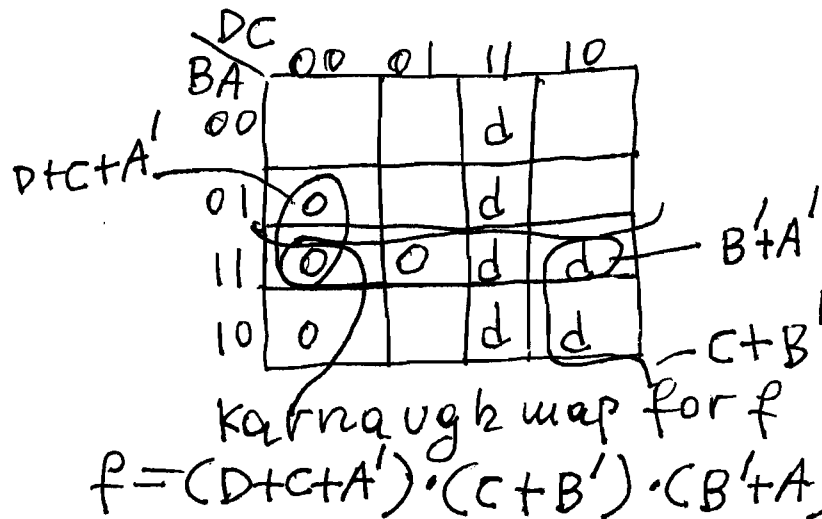 DC
BA 00 01 11 10
00 d
D+C+A'
01 0 d
11 0 0 d d
B'+A'
10 0 d d
C+B'
Karnaugh map for f
f=(D+C+A')·(C+B')·(B'+A